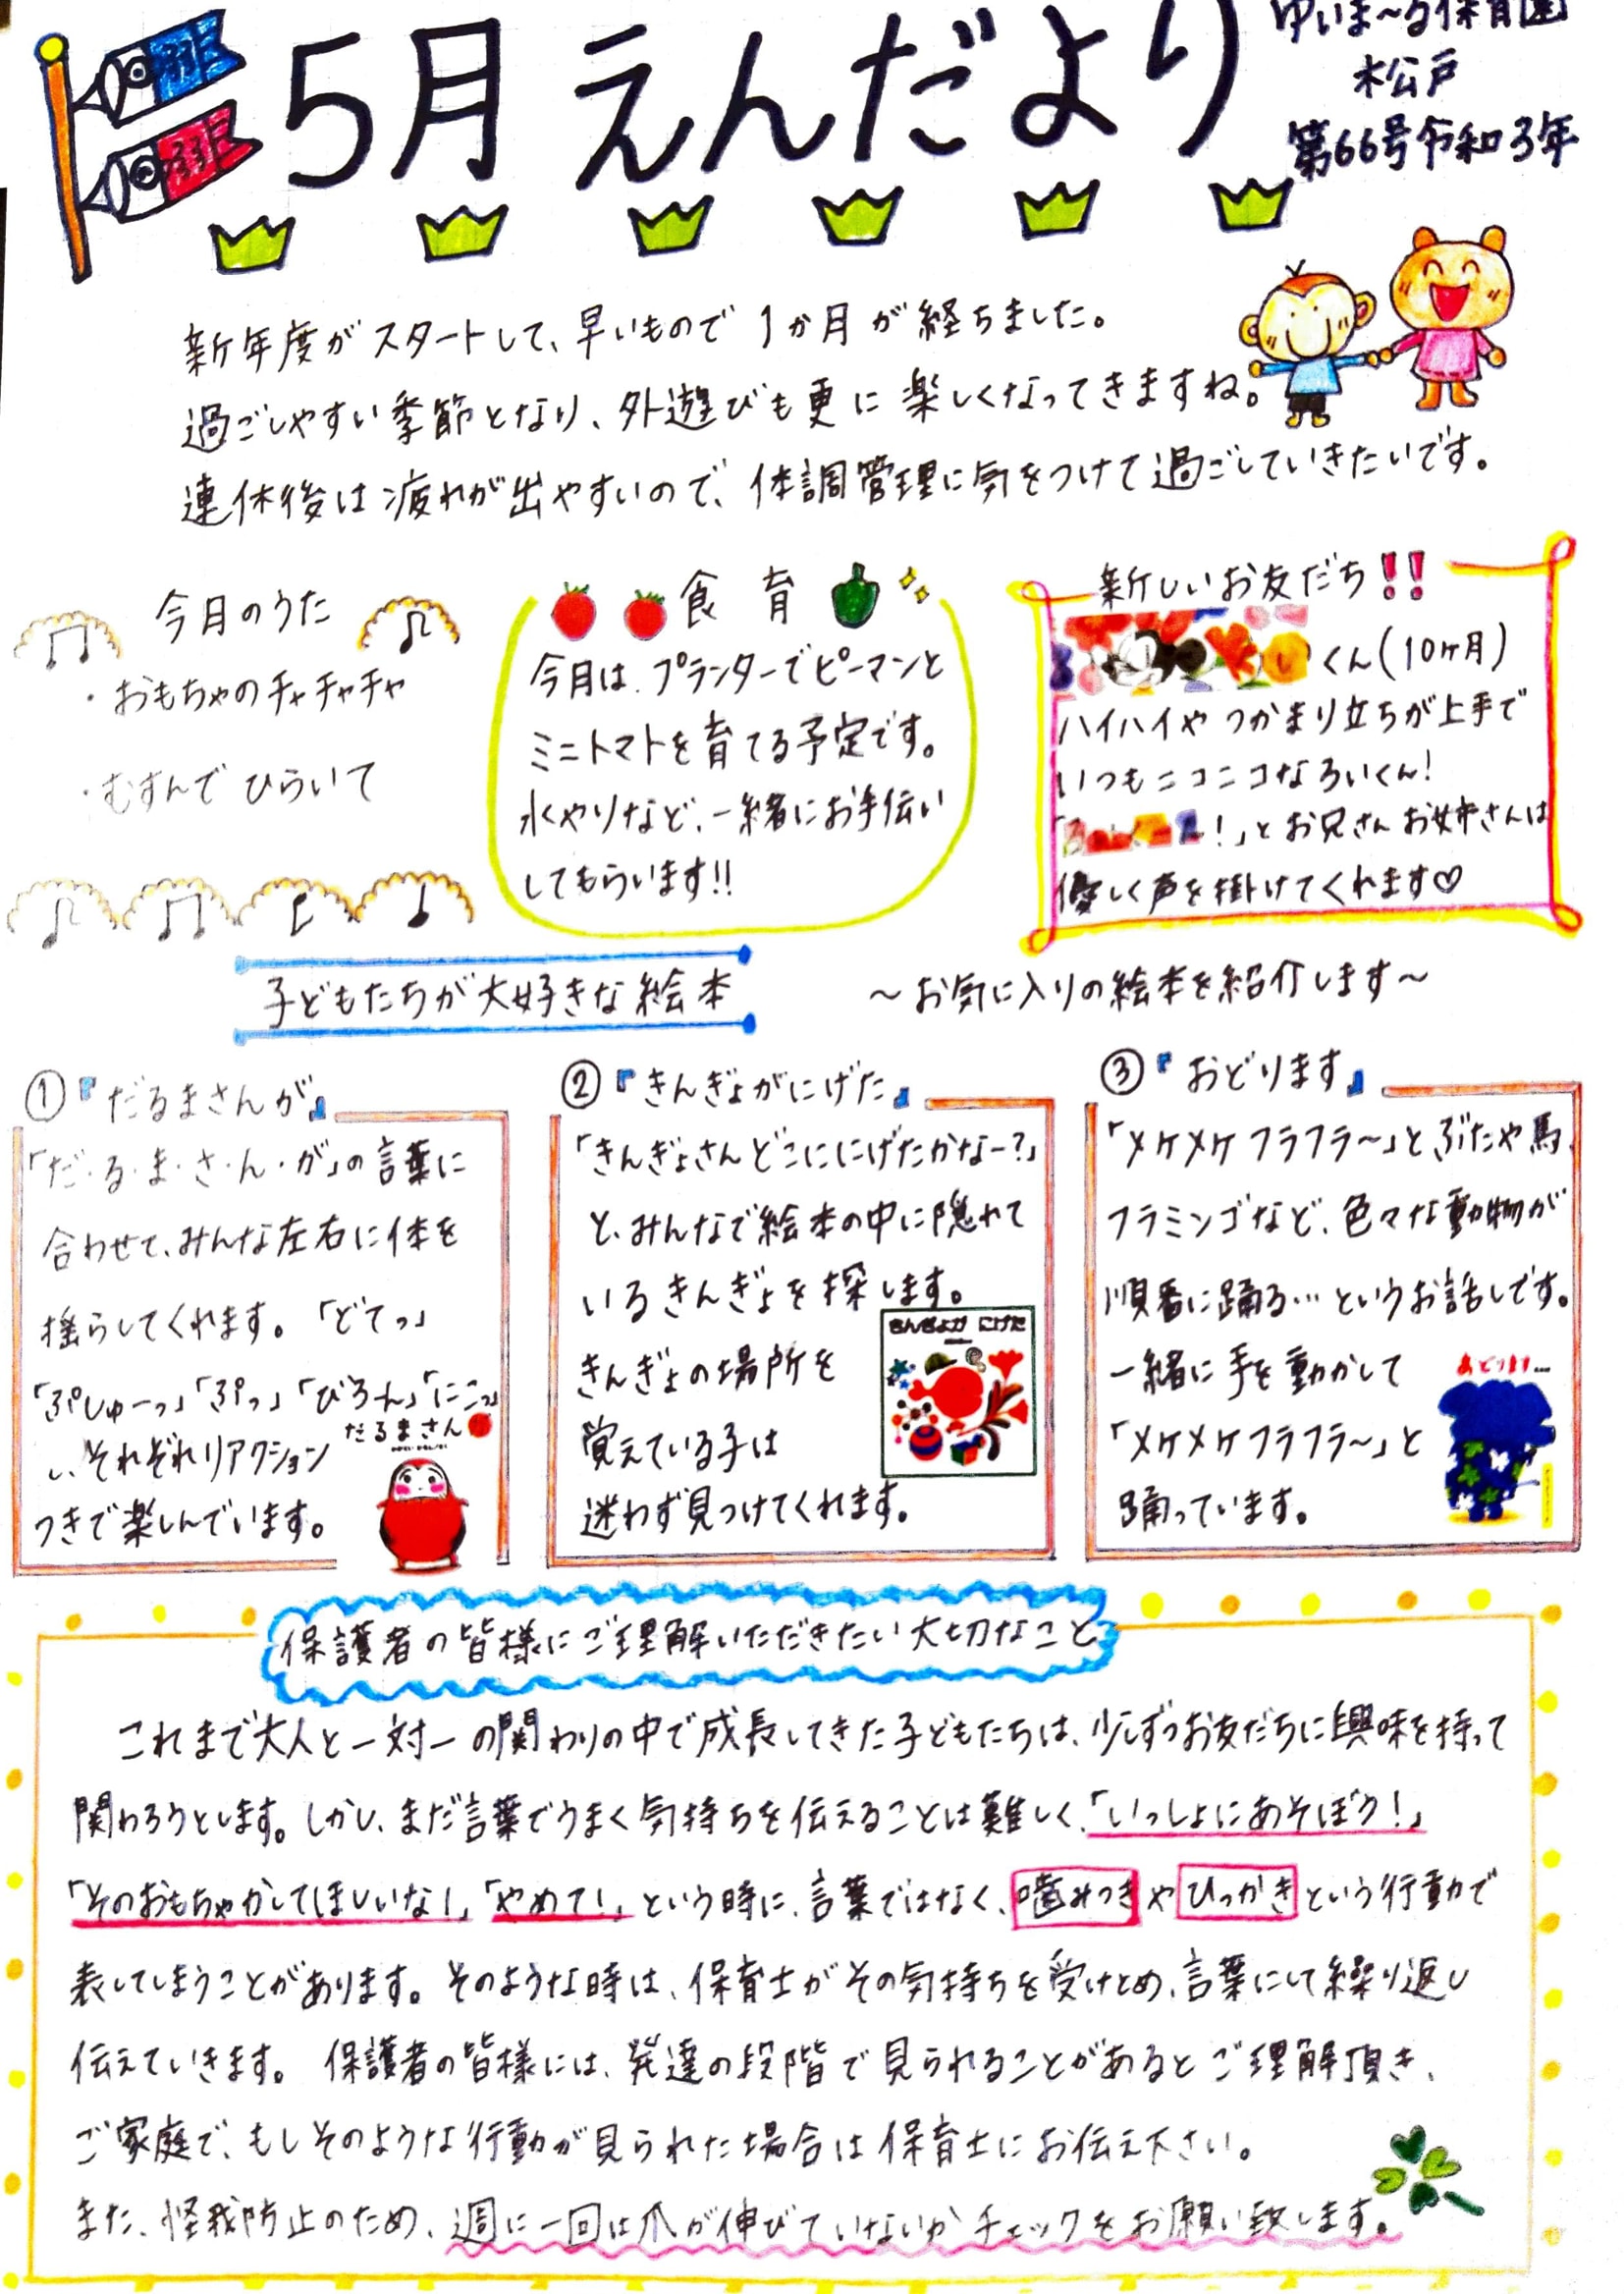 5月えんだより
ゆいま～る保育園
松戸
第66号令和3年
新年度がスタートして、早いもので1か月が経ちました。
過ごしやすい季節となり、外遊びも更に楽しくなってきますね。
連休後は疲れが出やすいので、体調管理に気をつけて過ごしていきたいです。
今月のうた
・おもちゃのチャチャチャ
・むすんでひらいて
食育
今月は、プランターでピーマンと
ミニトマトを育てる予定です。
水やりなど、一緒にお手伝い
してもらいます!!
新しいお友だち!!
くん(10ヶ月)
ハイハイやつかまり立ちが上手で
いつもニコニコなろいくん!
!」とお兄さんお姉さんは
優しく声を掛けてくれます♡
子どもたちが大好きな絵本
～お気に入りの絵本を紹介します～
①『だるまさんが』
「だ・る・ま・さ・ん・が」の言葉に
合わせて、みんな左右に体を
揺らしてくれます。「どてっ」
「ぷしゅーっ」「ぷっ」「びろーん」「にこっ」
と、それぞれリアクション
つきで楽しんでいます。
だるまさんが
②『きんぎょがにげた』
「きんぎょさんどこににげたかなー?」
と、みんなで絵本の中に隠れて
いるきんぎょを探します。
きんぎょの場所を
覚えている子は
迷わず見つけてくれます。
きんぎょが にげた
③『おどります』
「メケメケフラフラ～」とぶたや馬、
フラミンゴなど、色々な動物が
順番に踊る…というお話しです。
一緒に手を動かして
「メケメケフラフラ～」と
踊っています。
おどります…
保護者の皆様にご理解いただきたい大切なこと
これまで大人と一対一の関わりの中で成長してきた子どもたちは、少しずつお友だちに興味を持って
関わろうとします。しかし、まだ言葉でうまく気持ちを伝えることは難しく、「いっしょにあそぼう!」
「そのおもちゃかしてほしいな!」「やめて!」という時に、言葉ではなく、噛みつきやひっかきという行動で
表してしまうことがあります。そのような時は、保育士がその気持ちを受けとめ、言葉にして繰り返し
伝えていきます。保護者の皆様には、発達の段階で見られることがあるとご理解頂き、
ご家庭で、もしそのような行動が見られた場合は保育士にお伝え下さい。
また、怪我防止のため、週に一回は爪が伸びていないかチェックをお願い致します。